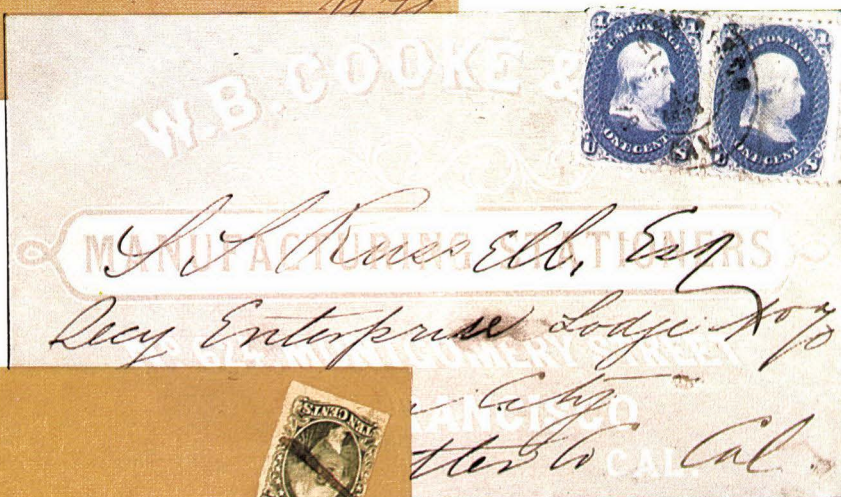 W.B. COOKE &
U.S. POSTAGE
ONE CENT
POSTAGE
ONE CENT
MANUFACTURING STATIONERS
S S Russell, Esq
Secy Enterprise Lodge No 70
No 624 MONTGOMERY STREET
City
FRANCISCO
tter Co Cal.
CAL.
TEN CENTS